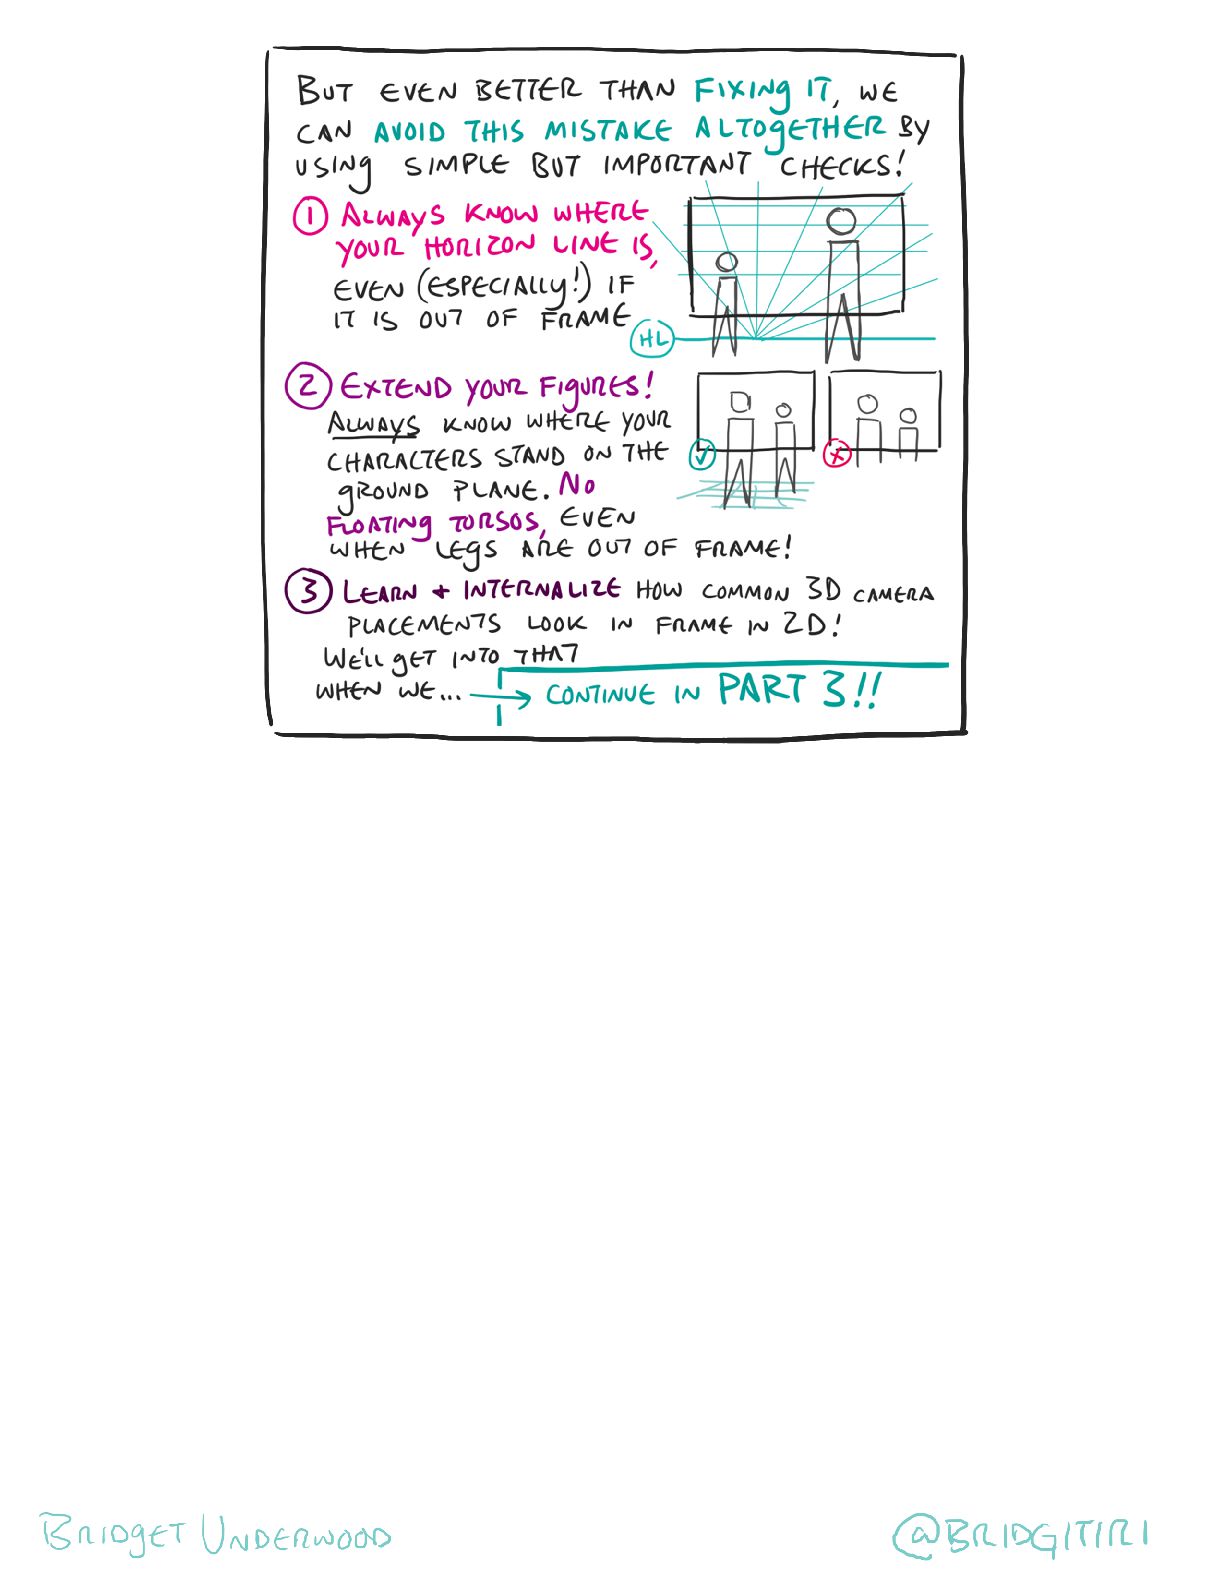 BUT EVEN BETTER THAN FIXING IT, WE
CAN AVOID THIS MISTAKE ALTOGETHER BY
USING SIMPLE BUT IMPORTANT CHECKS!
1 ALWAYS KNOW WHERE
YOUR HORIZON LINE IS,
EVEN (ESPECIALLY!) IF
IT IS OUT OF FRAME
HL
2 EXTEND YOUR FIGURES!
ALWAYS KNOW WHERE YOUR
CHARACTERS STAND ON THE
GROUND PLANE. NO
FLOATING TORSOS, EVEN
WHEN LEGS ARE OUT OF FRAME!
3 LEARN + INTERNALIZE HOW COMMON 3D CAMERA
PLACEMENTS LOOK IN FRAME IN 2D!
WE'LL GET INTO THAT
WHEN WE... → CONTINUE IN PART 3!!
BRIDGET UNDERWOOD
@BRIDGITIRI